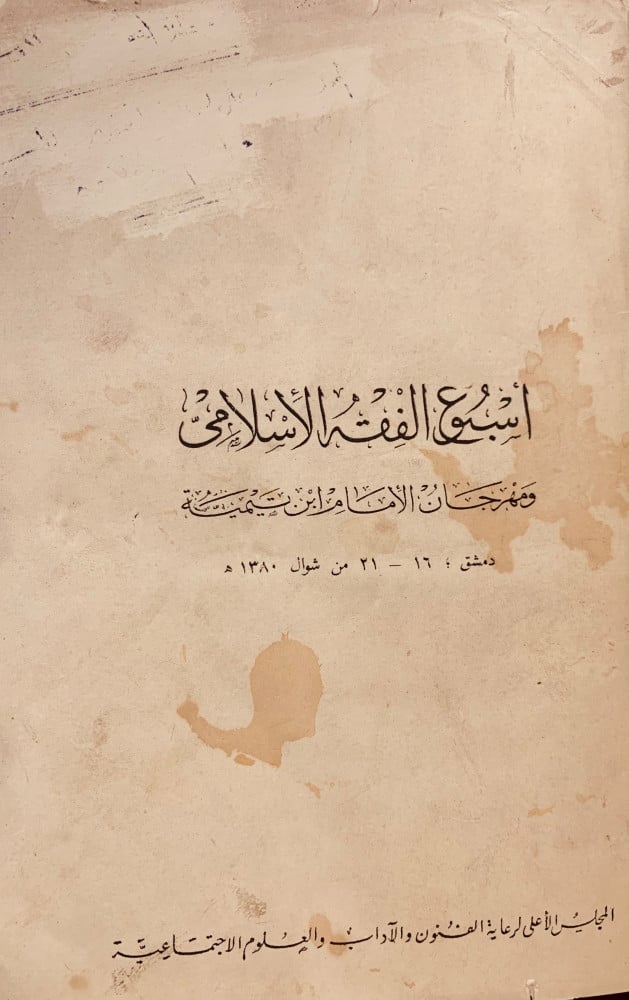 أُسْبُوع الفِقْه الأَسْلَامِيّ
وَمَهْرَجَانُ الأمَام ابْن تَيْمِيَّة
دمشق ؛ ١٦ – ٢١ من شوال ١٣٨٠ ه
المجلس الأعلى لرعاية الفنون والآداب والعلوم الاجتماعيّة